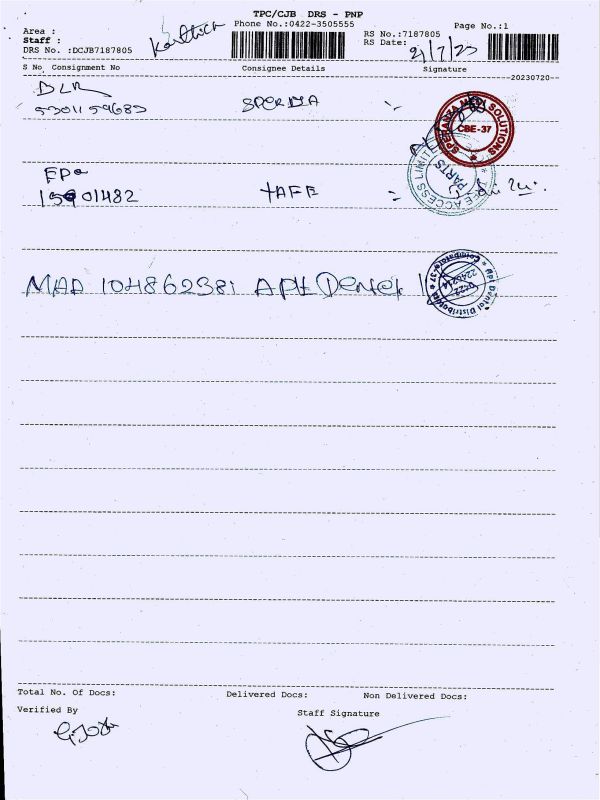 TPC/CJB DRS - PNP
Phone No.:0422-3505555
Page No.:1
Area :
Staff : Karthick
RS No.:7187805
RS Date: 21/7/23
DRS No. :DCJB7187805
S No Consignment No Consignee Details Signature
--20230720--
DLR
SPERANZA MEDI SOLUTIONS
CBE-37
ACCESS LIMITED
PARTS
15001482 TAFE
MAA 104862381 APT Dental
Apt Dental Distributor
Coimbatore-37
Total No. Of Docs: Delivered Docs: Non Delivered Docs:
Verified By Staff Signature